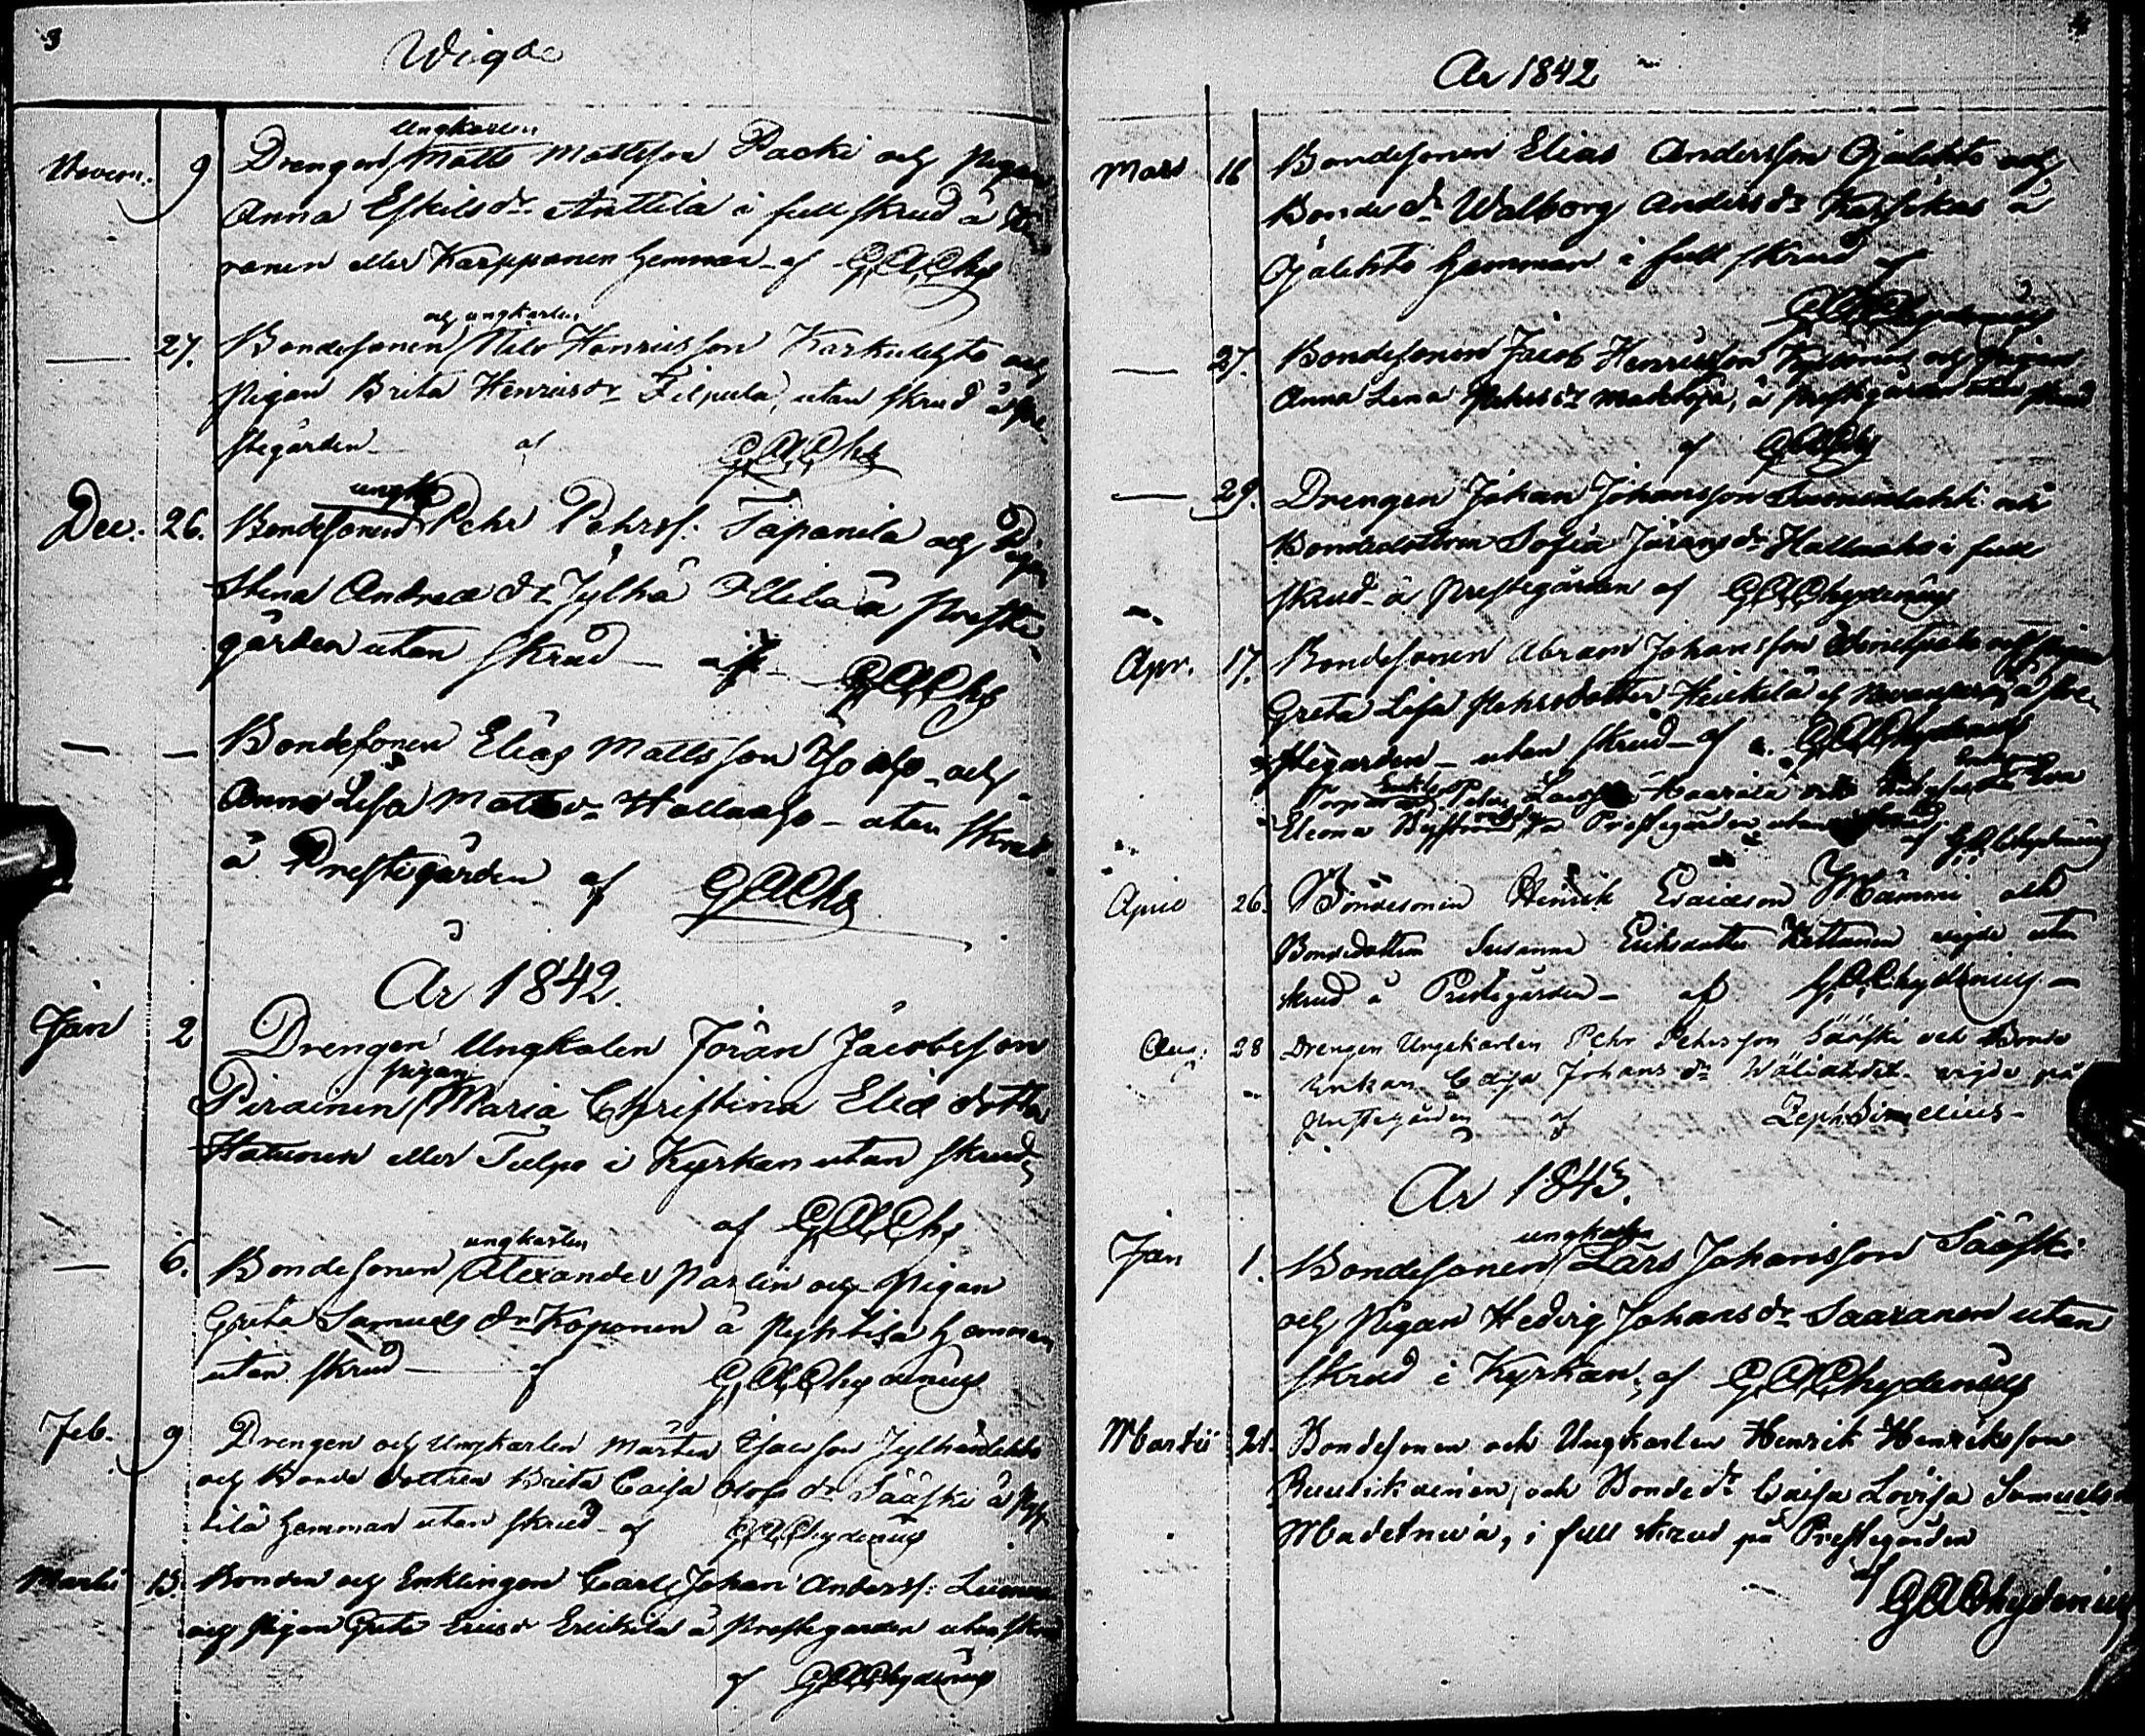 3
Wigde
Ungkarlen
Novem. 9 Drengen Matts Mattsson Packi och Pigan
Anna Eskilsdr. Anttila i full skrud å
ronen eller Karpponen hemman af GAChs
och ungkarlen
— 27. Bondesonen Nils Henricsson Karkulehto och
Pigan Brita Henricsdr Filpula, utan skrud å Pre-
stegården af GAChs
ungk
Dec. 26. Bondesonen Pehr Pehrss. Tapanila och Pigan
Stena Andreæ dr. Jylhä å Preste-
gården utan skrud — af GAChs
— — Bondesonen Elias Mattsson och
Anna Lisa Matsdr Hallaaho — utan skrud
å Prestegården af GAChs
År 1842.
Jan 2 Drengen Ungkalen Jöran Jacobsson
pigan
Pirainen Maria Christina Eliæ dotter
Hatunen eller Tulpo i Kyrkan utan skrud
af GAChs
ungkarlen
— 6. Bondesonen Alexander Parlin och Pigan
Greta Samuels dr Koponen å hemman
utan skrud — af GAChydenius
Feb. 9 Drengen och Ungkarlen Mårten Jylhänlehto
och Bonde dottren Brita Caisa Olofs dr Sääski å
tilä hemman utan skrud af GAChydenius
Martii 13. Bonden och Enklingen Carl Johan Anderss.
och Pigan Greta Ericsdr å Prestegården utan skrud
af GAChydenius
4
År 1842
Mars 16 Bondesonen Elias Andersson Ojalehto och
Bonde dr Walborg Anders dr å
Ojalehto hemman i full skrud af
GAChydenius
— 27. Bondesonen Jacob Henricsson och Pigan
Anna Lena Pehrsdr å Prestgården utan skrud
af GAChs
— 29. Drengen Johan Johansson och
Bondedottren Sofia Jörans dr Hallaaho i full
skrud å Prestegården af GAChydenius
Apr. 17. Bondesonen Abram Johansson och Pigan
Greta Lisa Pehrsdotter Heickilä af å Pre-
stegården — utan skrud — af GAChydenius
å Prestegården utan skrud
af GAChydenius
April 26. Bondesonen Henrik Ericsson och
Bondedottren Susanna Eriksdotter Kettunen vigde utan
skrud å Prestegården — af GAChydenius —
Aug. 28 Drengen Ungekarlen Pehr Pehrsson Sääski och Bonde
Enkan Caisa Johans dr vigde på
Prestegården af Zeph Simelius
År 1843.
ungkarlen
Jan 1. Bondesonen Lars Johansson Sääski
och Pigan Hedvig Johans dr Saaranen utan
skrud i Kyrkan af GAChydenius
Martii 21. Bondesonen och Ungkarlen Henrik Henriksson
Ruuskainen och Bonde dr Caisa Lovisa Samuelsd
Madetneva, i full skrud på Prestegården
af GAChydenius